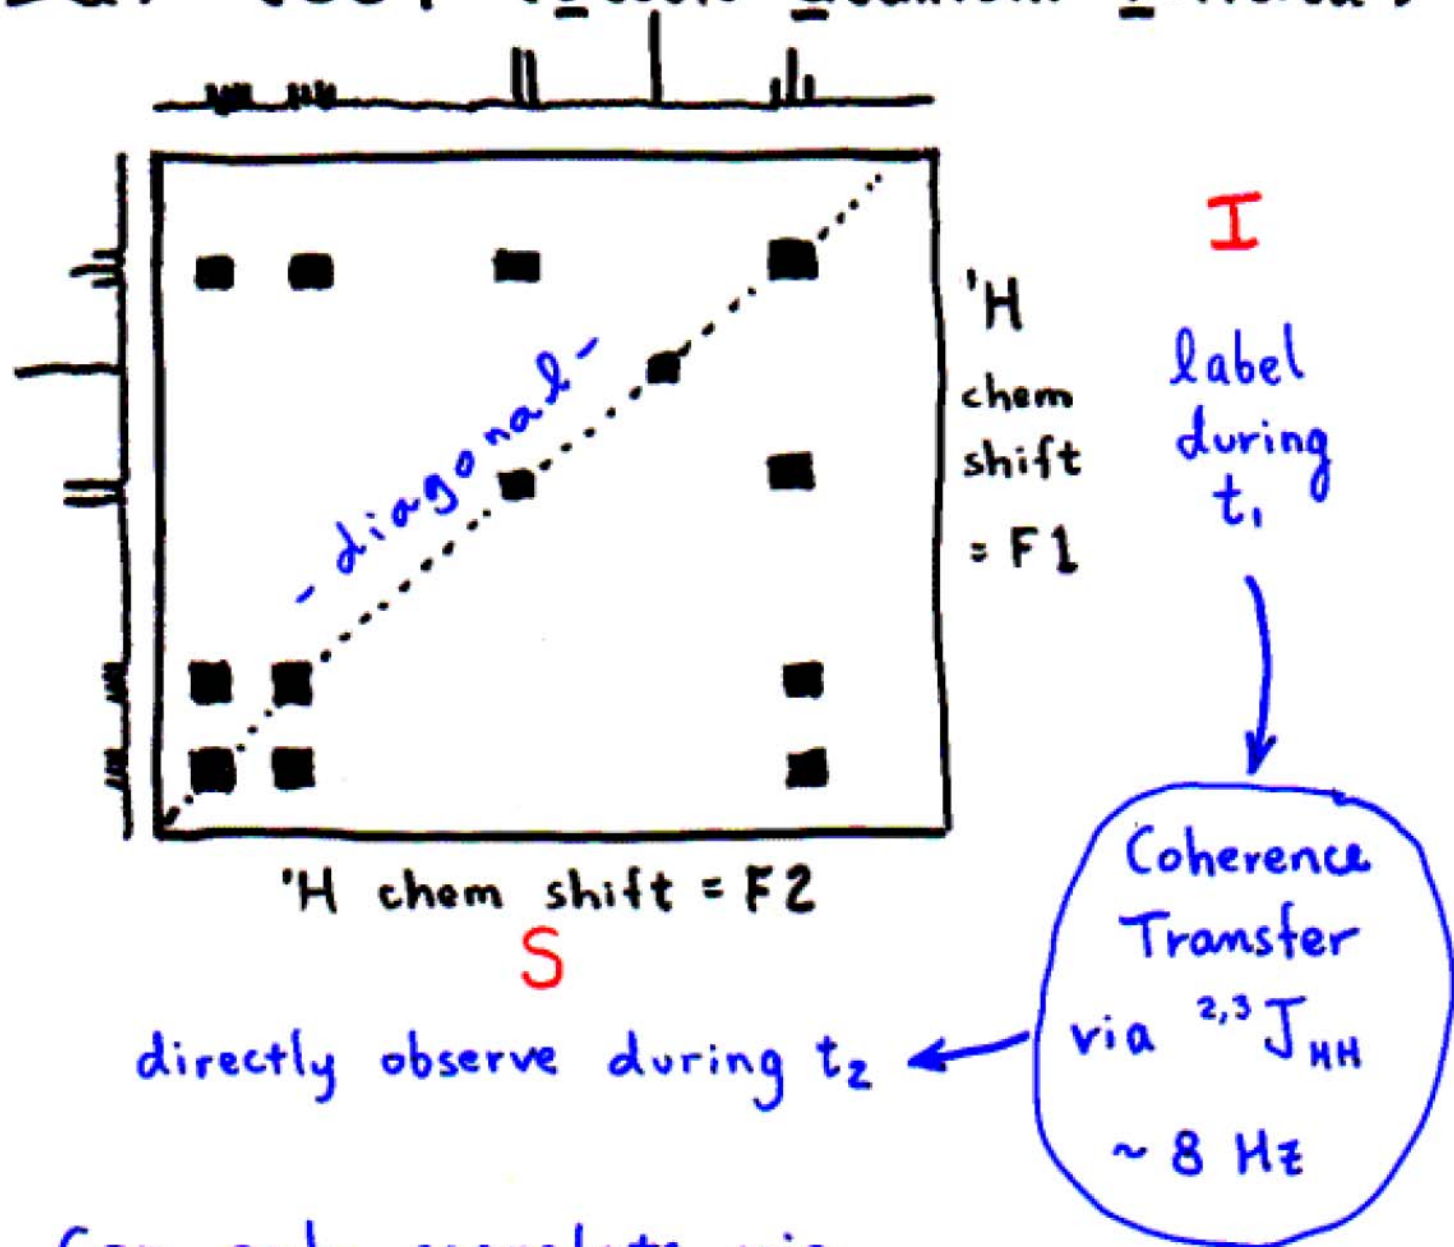 'H
chem
shift
= F1
I
label
during
t₁
- diagonal -
'H chem shift = F2
S
directly observe during t₂
Coherence
Transfer
via ²,³J HH
~ 8 Hz